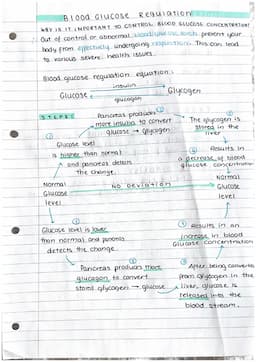 Blood Glucose Regulation
WHY IS IT IMPORTANT TO CONTROL BLOOD GLUCOSE CONCENTRATION?
Out of control or abnormal blood glucose levels prevent your
body from effectively undergoing respiration. This can lead
to various severe health issues.
Blood glucose regulation equation:
insulin
Glucose Glycogen
glucagon
STEPS:
Pancreas produces
more insulin to convert
glucose → Glycogen
The glycogen is
stored in the
liver
Glucose level
is higher than normal
and pancreas detects
the change.
Results in
a decrease of blood
glucose concentration
Normal
Glucose
level
NO DEVIATION
Normal
Glucose
level
Glucose level is lower
than normal and pancreas
detects the change.
Results in an
increase in blood
Glucose concentration
Pancreas produces more
glucagon to convert
stored glycogen → glucose
After being converted
from Glycogen in the
liver, glucose is
released into the
blood stream.